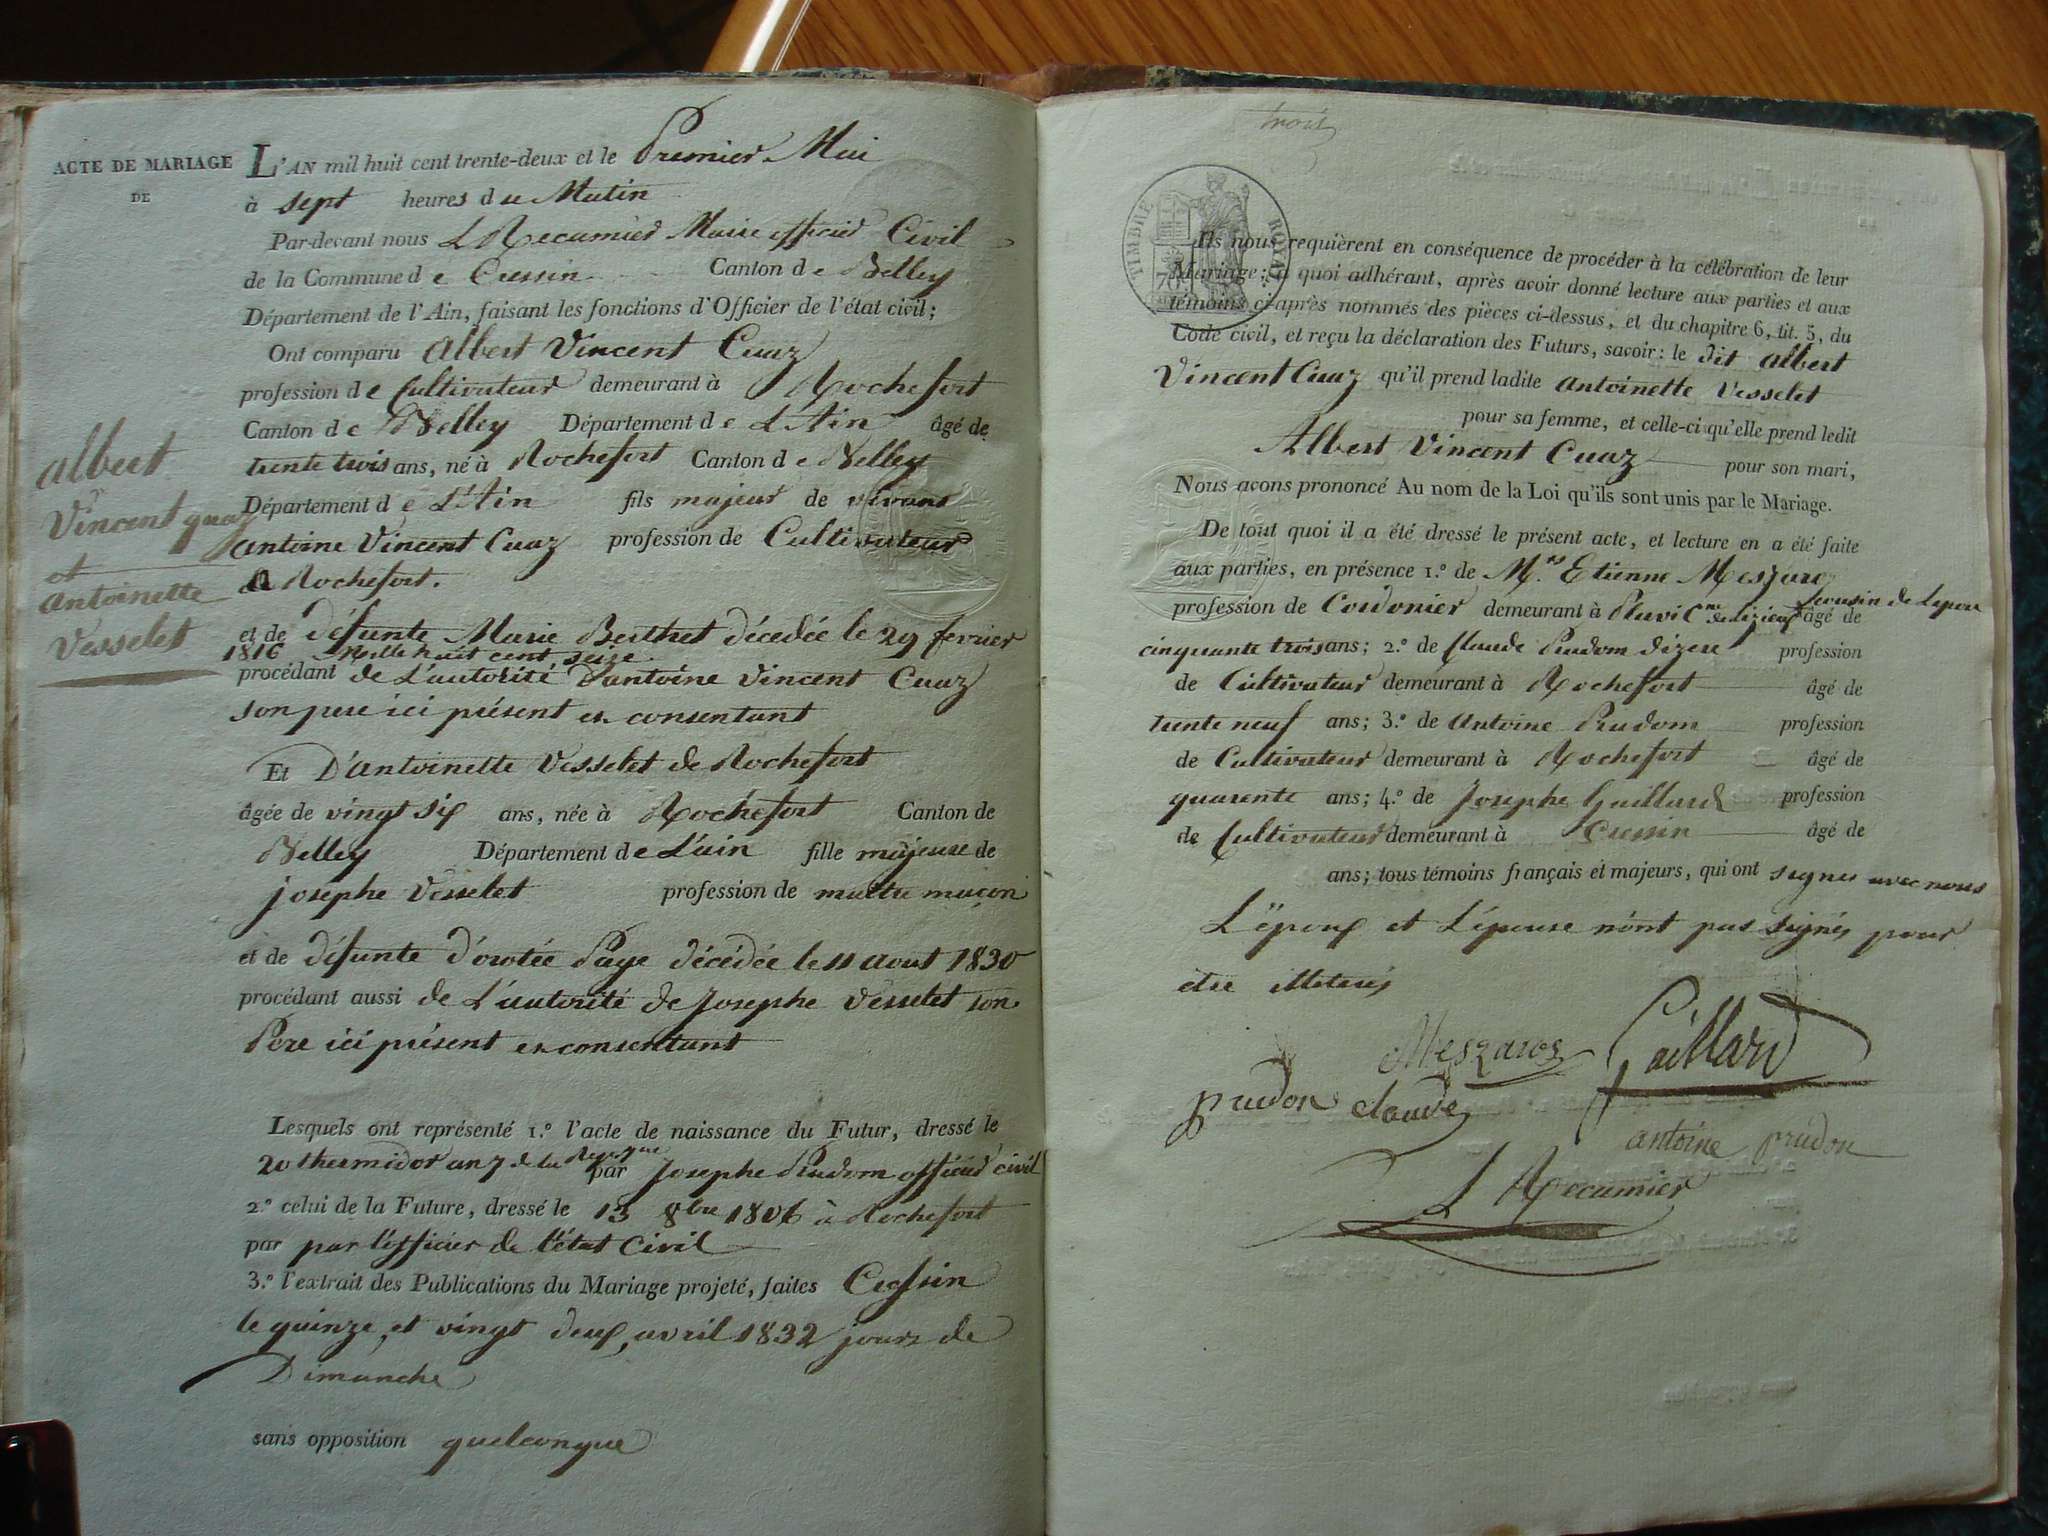 ACTE DE MARIAGE
DE
albert
Vincent quaz
et
antoinette
Vesselet
L'AN mil huit cent trente-deux et le Premier Mai
à sept heures du Matin
Par-devant nous L Recamier Maire officier Civil
de la Commune de Cressin Canton de Belley
Département de l'Ain, faisant les fonctions d'Officier de l'état civil;
Ont comparu Albert Vincent Cuaz
profession de Cultivateur demeurant à Rochefort
Canton de Belley Département de L'Ain âgé de
trente trois ans, né à Rochefort Canton de Belley
Département de L'Ain fils majeur de vivant
antoine Vincent Cuaz profession de Cultivateur
a Rochefort.
et de défunte Marie Berthet décedée le 29 fevrier
1816 Mille huit cent seize
procédant de L'autorité d'antoine Vincent Cuaz
son pere ici présent et consentant
Et D'antoinette Vesselet de Rochefort
âgée de vingt six ans, née à Rochefort Canton de
Belley Département de L'ain fille majeure de
josephe Vesselet profession de maitre maçon
et de défunte dorotée Paye décédée le 11 aout 1830
procédant aussi de L'autorité de Josephe Vesselet son
Pere ici présent et consentant
Lesquels ont représenté 1.º l'acte de naissance du Futur, dressé le
20 thermidor an 7 de la par Josephe Prudom officier civil
2.º celui de la Future, dressé le 13 8bre 1806 à Rochefort
par par l'officier de l'état Civil
3.º l'extrait des Publications du Mariage projeté, faites Cressin
le quinze, et vingt deux, avril 1832 jours de
Dimanche
sans opposition quelconque
trois
TIMBRE ROYAL
70
Ils nous requièrent en conséquence de procéder à la célébration de leur
Mariage; à quoi adhérant, après avoir donné lecture aux parties et aux
témoins ci-après nommés des pièces ci-dessus, et du chapitre 6, tit. 5, du
Code civil, et reçu la déclaration des Futurs, savoir: le dit albert
Vincent Cuaz qu'il prend ladite antoinette Vesselet
pour sa femme, et celle-ci qu'elle prend ledit
Albert Vincent Cuaz pour son mari,
Nous avons prononcé Au nom de la Loi qu'ils sont unis par le Mariage.
De tout quoi il a été dressé le présent acte, et lecture en a été faite
aux parties, en présence 1.º de M.rs Etienne Meszaros
cousin de Lepoux
profession de Cordonier demeurant à âgé de
cinquante trois ans; 2.º de Claude Prudom dizeré profession
de Cultivateur demeurant à Rochefort âgé de
trente neuf ans; 3.º de Antoine Prudom profession
de Cultivateur demeurant à Rochefort âgé de
quarente ans; 4.º de Josephe Gaillard profession
de Cultivateur demeurant à Cressin âgé de
ans; tous témoins français et majeurs, qui ont signés avec nous
L'époux et L'épouse n'ont pas signés pour
etre illeterés
Meszaros Gaillard
prudon claude
antoine prudon
L Recamier